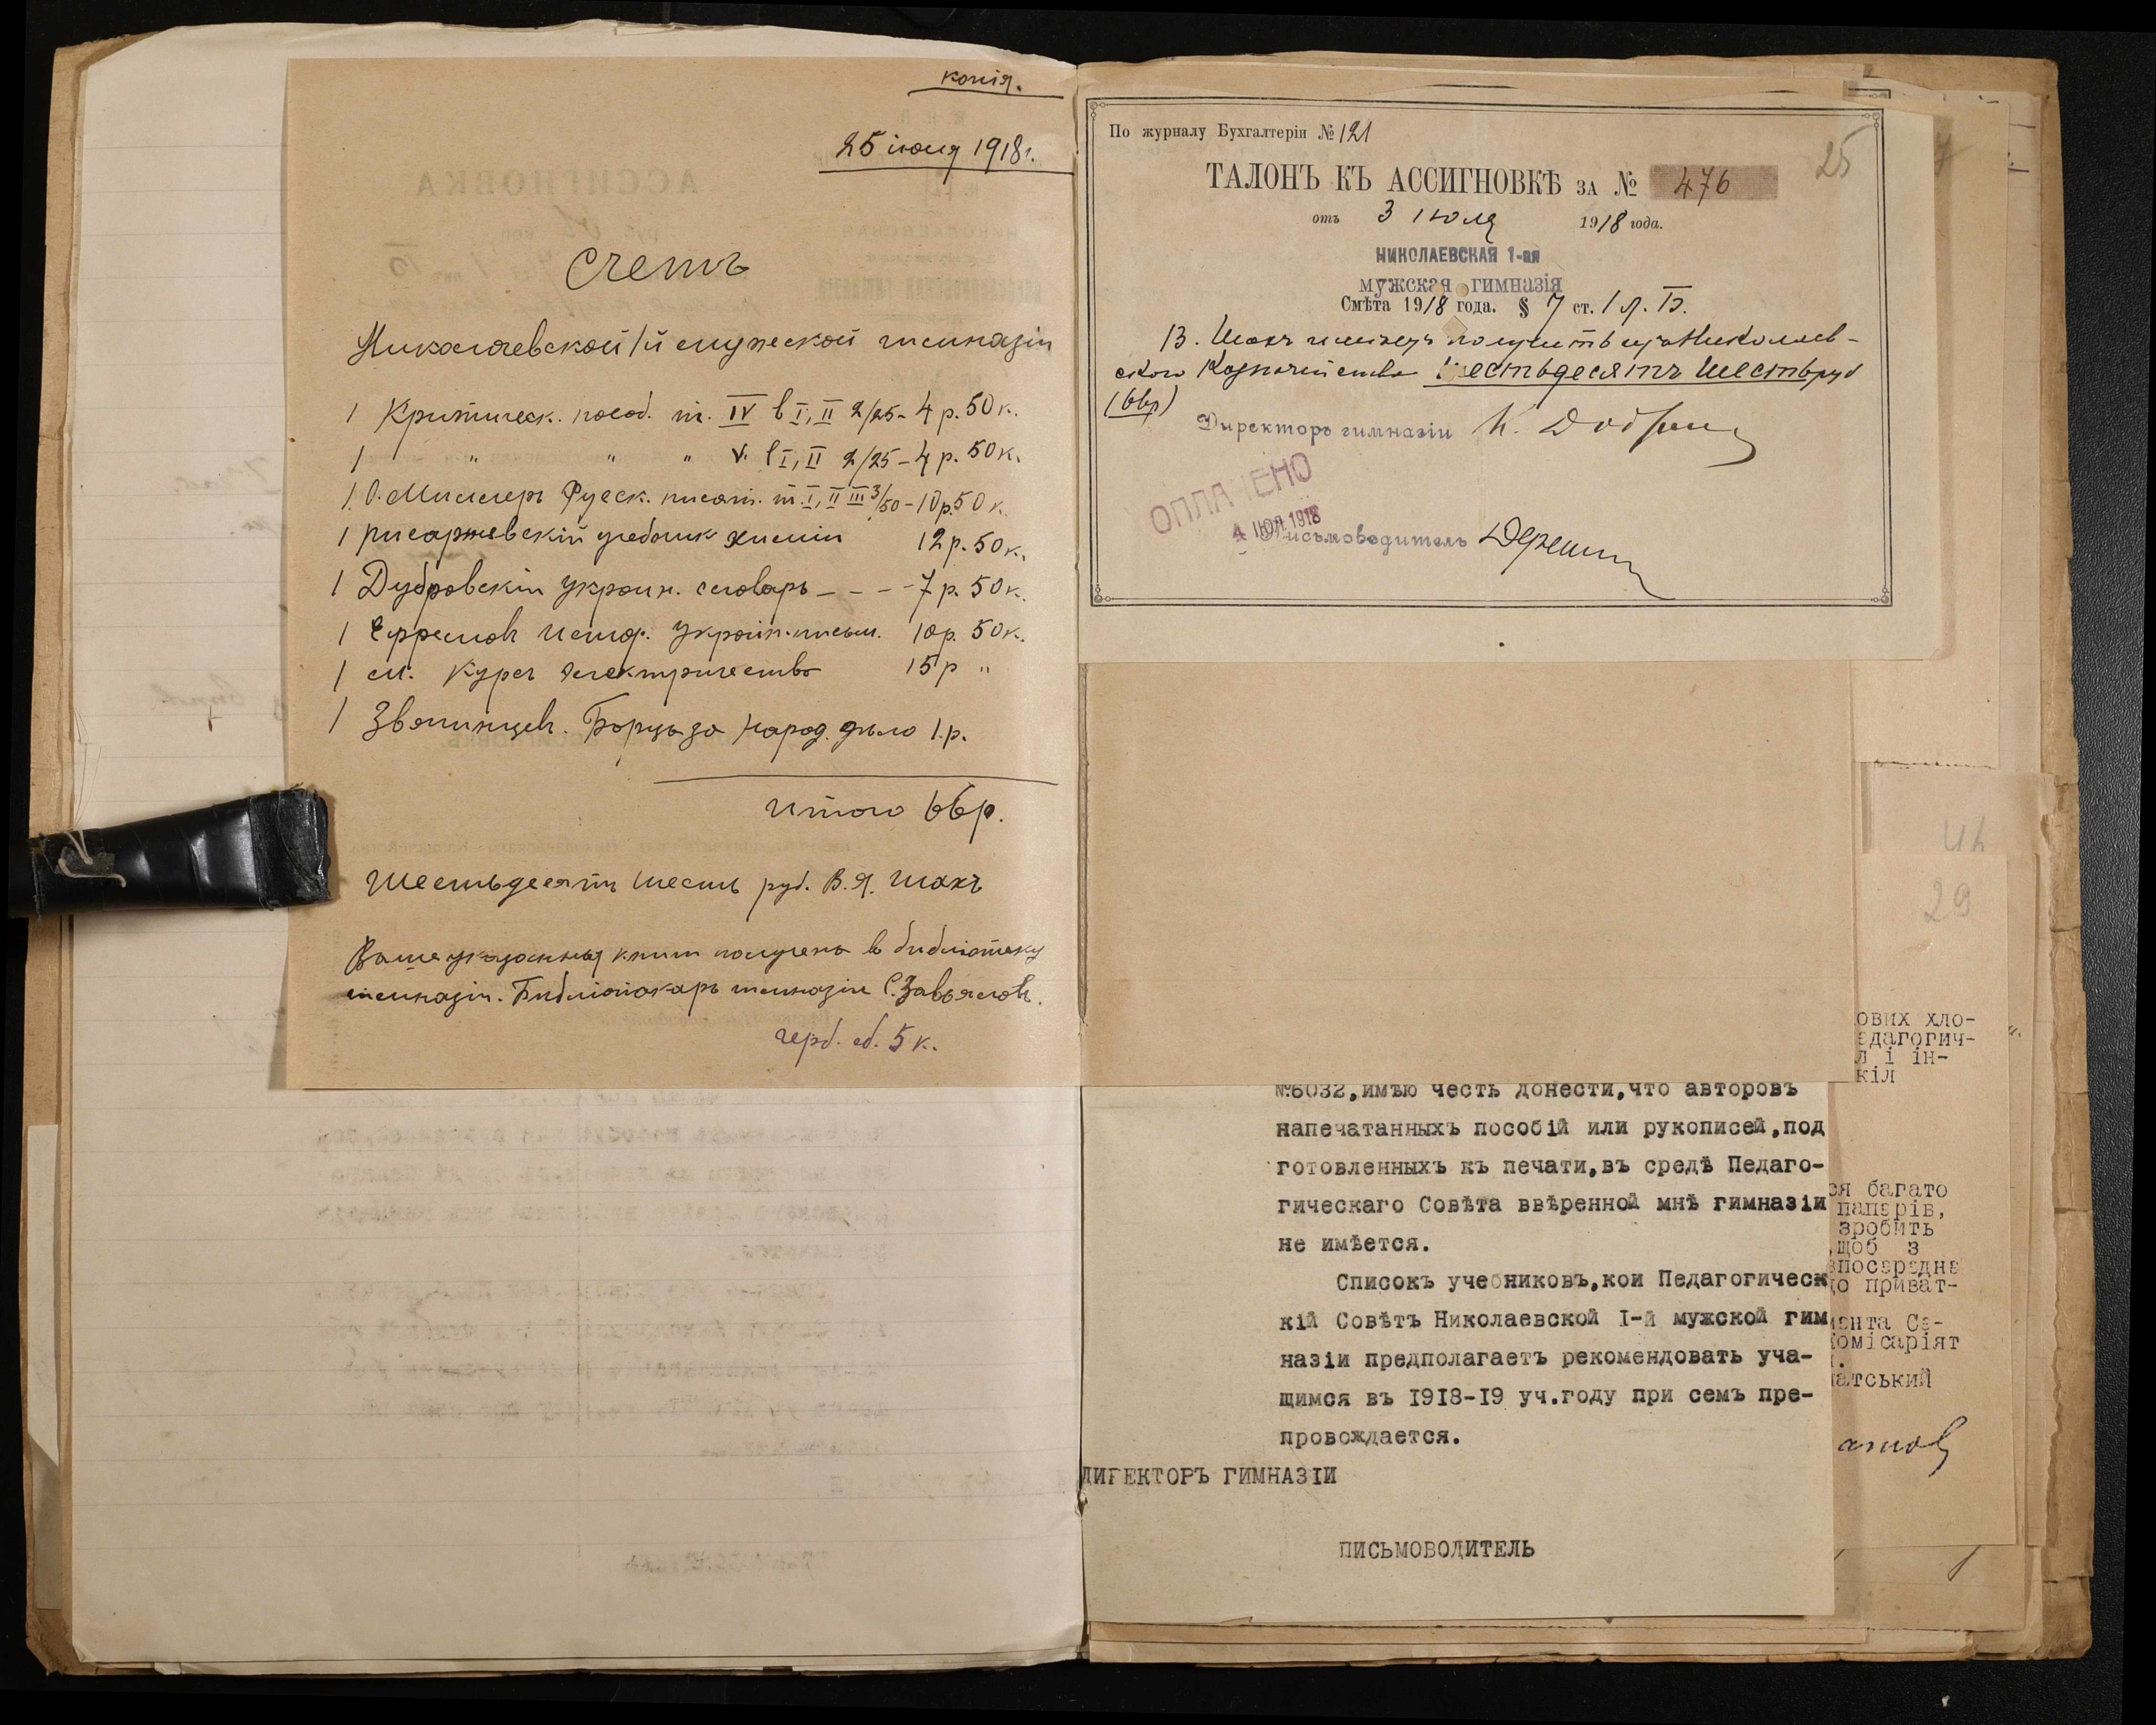 копія.
25 іюня 1918 г.
Счетъ
Николаевской 1й мужской гимназіи
1 Критическ. пособ. т. IV в I, II 2/25 - 4 р. 50 к.
1 " " " V. в I, II 2/25 - 4 р. 50 к.
1 О. Миллеръ Русск. писат. т. I, II III 3/50 - 10 р. 50 к.
1 Писаржевскій учебник химіи 12 р. 50 к.
1 Дубровскій Украин. словарь - - - 7 р. 50 к.
1 Ефремовъ Истор. Украін. письм. 10 р. 50 к.
1 Курсъ электричества 15 р "
1 Звягинцевъ. Борцы за народ. дѣло 1 р.
Итого 66 р.
Шестьдесятъ шесть руб. В. Я. Шакъ
Выше указанныя книги получены в библіотеку
гимназіи. Библіотекарь гимназіи С. Завьяловъ.
герб. сб. 5 к.
По журналу Бухгалтеріи № 121
25
ТАЛОНЪ КЪ АССИГНОВКѢ ЗА № 476
отъ 3 іюля 1918 года.
НИКОЛАЕВСКАЯ 1-ая
мужская гимназія
Смѣта 1918 года. § 7 ст. 1 л. Б.
В. Шакъ имѣетъ получить изъ Николаев-
скаго Казначейства Шестьдесятъ шесть руб
(66 р)
Директоръ гимназіи
ОПЛАЧЕНО
4 ІЮЛ 1918
Письмоводитель
41
29
№6032,имѣю честь донести,что авторовъ
напечатанныхъ пособій или рукописей,под
готовленныхъ къ печати,въ средѣ Педаго-
гическаго Совѣта ввѣренной мнѣ гимназіи
не имѣется.
Списокъ учебниковъ,кои Педагогическ
кій Совѣтъ Николаевской I-й мужской гим
назіи предполагаетъ рекомендовать уча-
щимся въ I9I8-I9 уч.году при семъ пре-
провождается.
ДИРЕКТОРЪ ГИМНАЗІИ
ПИСЬМОВОДИТЕЛЬ
ових хло-
едагогич-
л і ін-
кіл
ся багато
паперів,
зробить
,щоб з
зпосередне
до приват-
мента Се-
комісаріят
.
атський